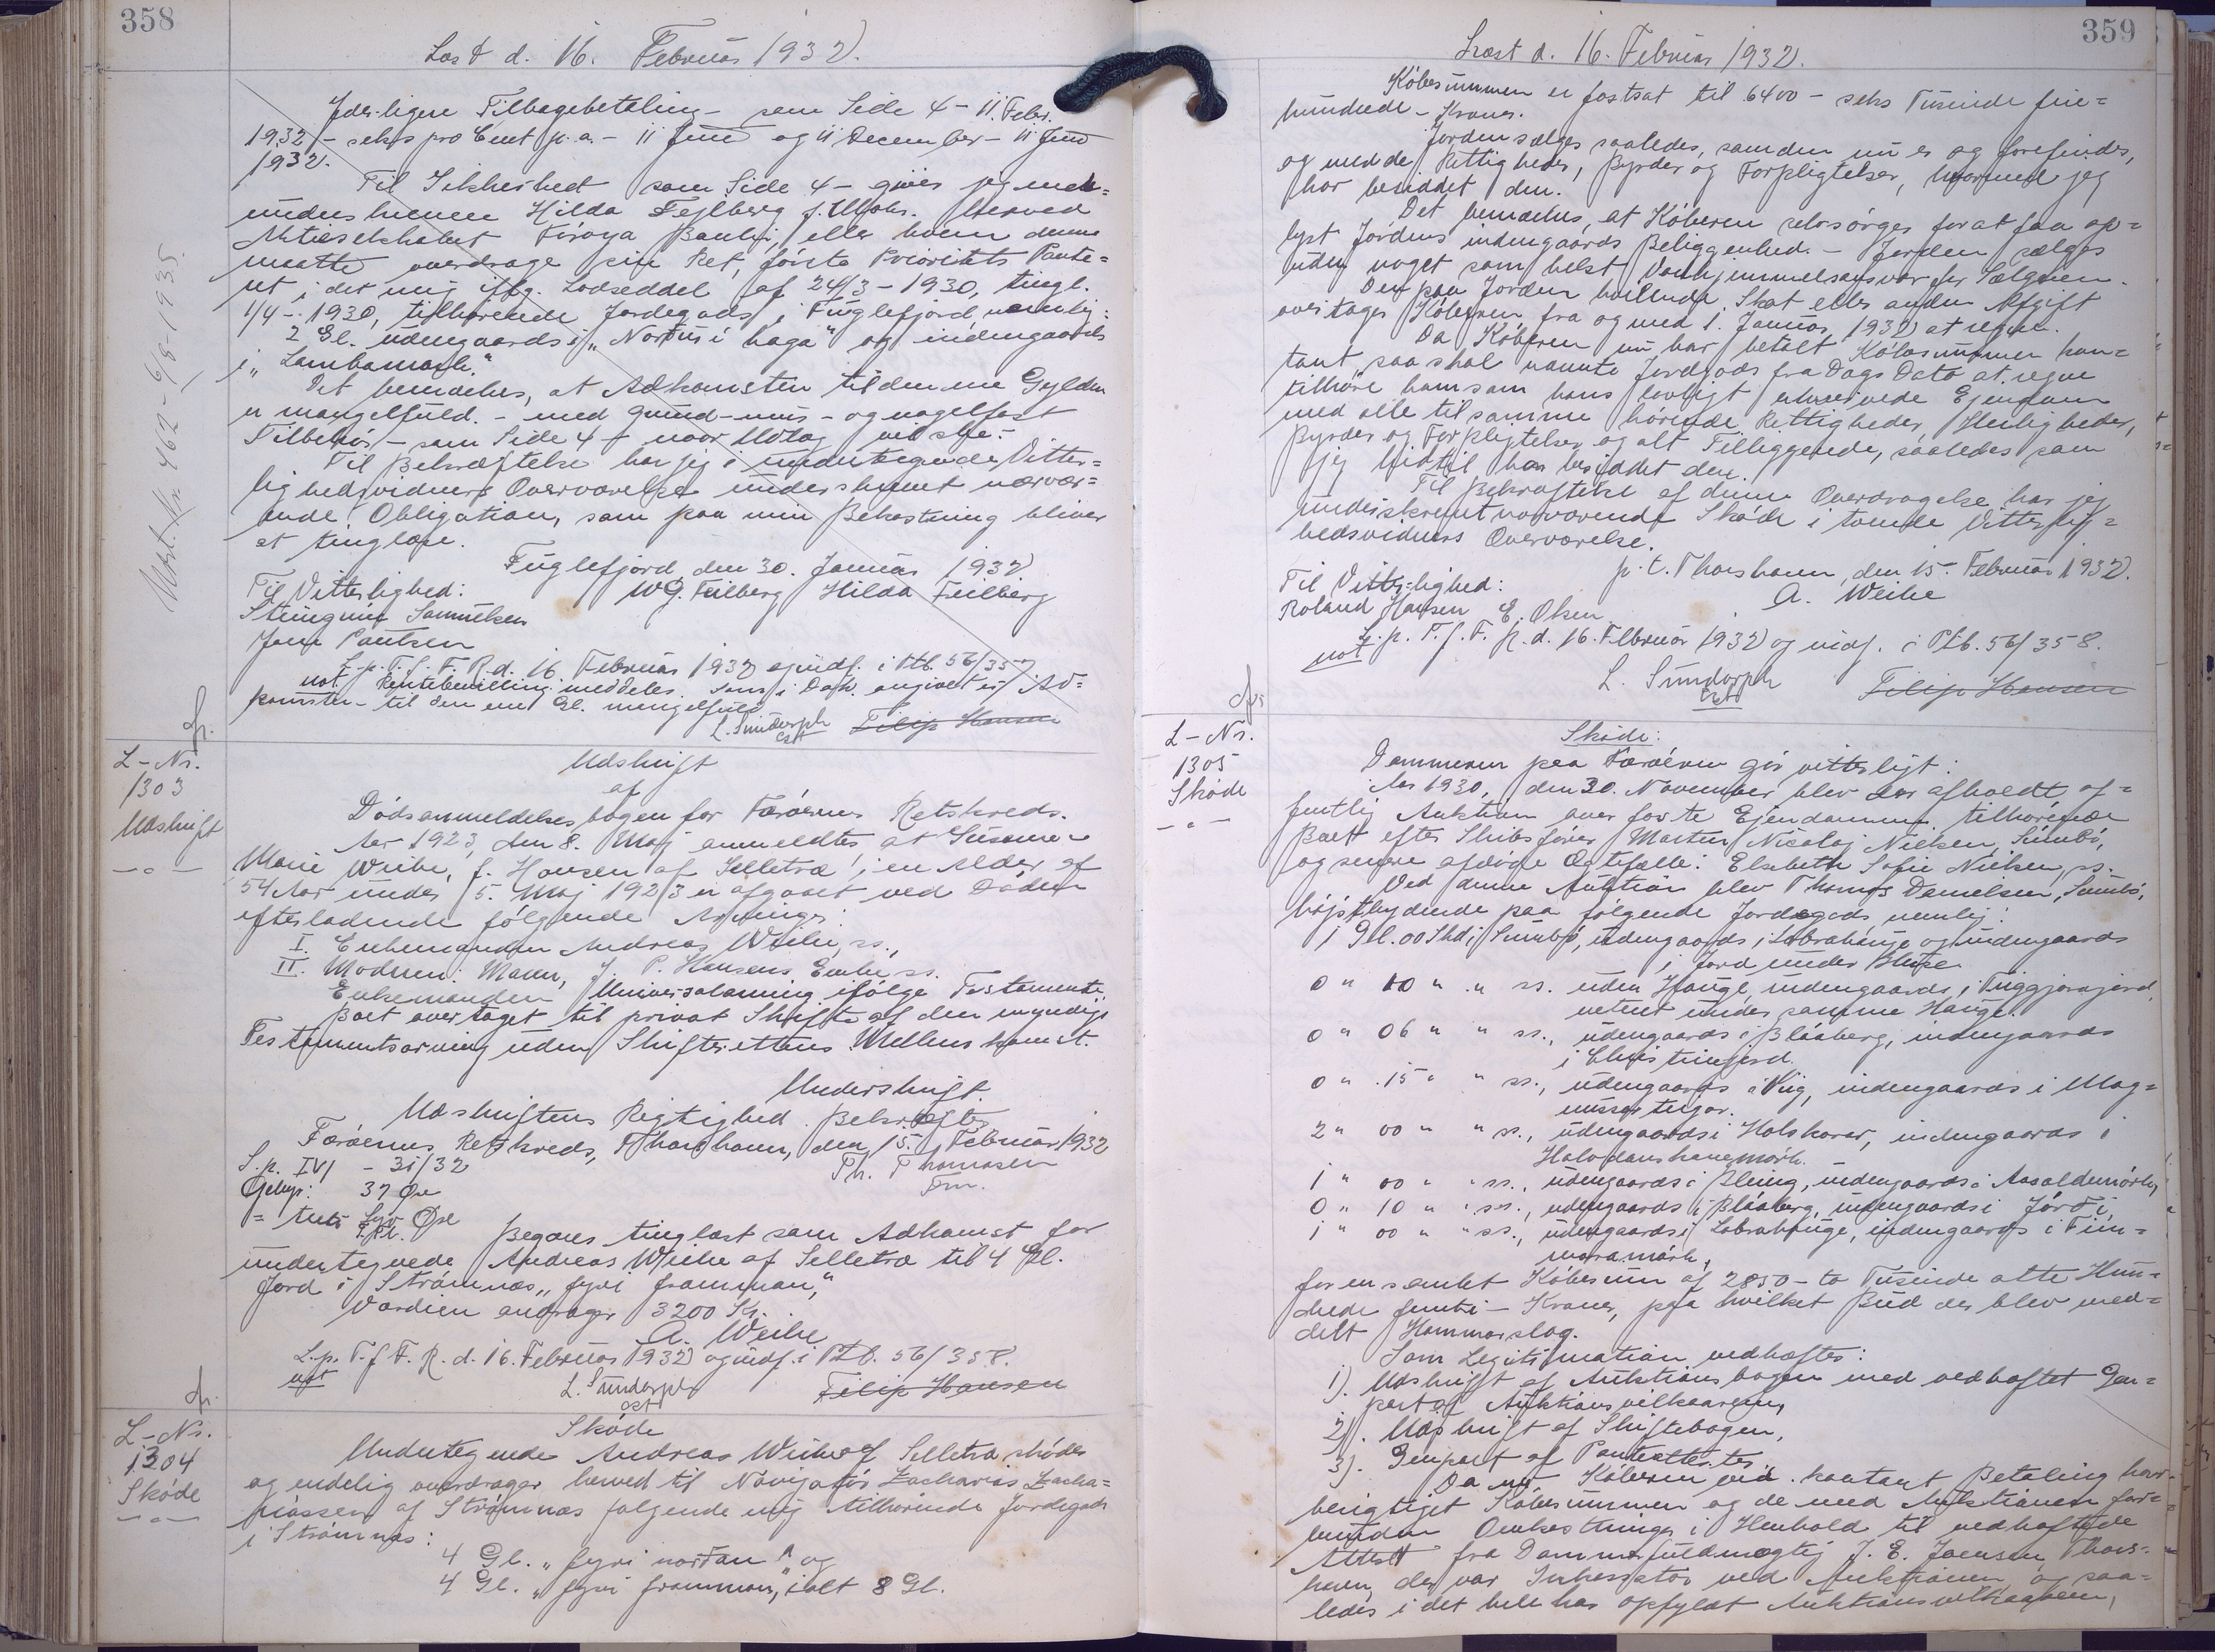 358
Læst d. 16. Februar 1932.
Yderligere Tilbagebetaling - som Side 4 - 11. Febr.
1932 - seks pro Cent p.a. - 11 Juni og 11 December - 11 Juni
1932.
Til Sikkerhed som Side 4 - giver jeg med-
Hilda Feilberg f. herved
Aktieselskabet Føroya Banki, eller hvem denne
maatte overdrage sin Ret, første Prioritets Pante-
ret i det mig iflg. Lodseddel af 24/3 - 1930, tingl.
1/4 - 1930, tilhørende Jordegods i Fuglefjord nemlig:
2 Gl. udengaards i "Norður i haga" og indengaards
i "Lambamørk."
Det bemærkes, at Adkomsten til den ene Gylden
er mangelfuld. - med grund- mur- og nagelfast
Tilbehør - som Side 4 - naar Udlæg vil ske. -
Til Bekræftelse har jeg i undertegnede Vitter-
lighedsvidners Overværelse underskrevet nærvær-
ende Obligation, som paa min Bekostning bliver
at tinglæse.
Fuglefjord den 30. Januar 1932
Til Vitterlighed: W G. Feilberg Hilda Feilberg
Samuelsen
Poulsen
L. p. T. f. F. R. d. 16. Februar 1932 og indf. i Ptb. 56/357
not. Rentebevilling meddeles. som i Dok. angivet er Ad-
komsten - til den ene Gl. mangelfuld
L. Sundorph Filip Hansen
cst
Mort. Nr. 462 - 6/8 - 1935.
L - Nr.
1303
Udskrift
- " -
Udskrift
af
Dødsanmeldelsesbogen for Færøernes Retskreds.
Aar 1923, den 8. Maj anmeldtes at Susanne
Marie Weihe, f. Hansen af Selletræ, i en Alder af
54 Aar under 5. Maj 1923 er afgaaet ved Døden
efterladende følgende Arvinger:
I. Enkemanden Andreas Weihe, ss.,
II. Moderen: Maren, J. P. Hansens Enke ss.
Enkemanden Universalarving ifølge Testamente
Boet overtaget til privat Skifte af den myndige
Testamentsarving uden Skifterettens Mellemkomst.
Underskrift.
Udskriftens Rigtighed Bekræftes
Færøernes Retskreds, Thorshavn, den 15. Februar 1932
S.p. IV - 31/32 Th. Thomasen
Gebyr: 37 Øre Fm.
= tredi syv Øre
Begæres tinglæst som Adkomst for
undertegnede Andreas Weihe af Selletræ til 4 Gl.
Jord i Strømnæs "fyri framman,"
Værdien andrager 3200 Kr.
A. Weihe
L. p. T. f. F. R. d. 16. Februar 1932 og indf. i Ptb. 56/358.
not
L. Sundorph Filip Hansen
cst
L - Nr.
1304
Skøde
- " -
Skøde
Undertegnede Andreas Weihe af Selletræ skøder
og endelig overdrager herved til Navigatør Zacharias Zacha-
riassen af Strømnæs følgende mig tilhørende Jordegods
i Strømnæs:
4 Gl. "fyri norðan" og
4 Gl. "fyri framman," ialt 8 Gl.
359
Læst d. 16. Februar 1932.
Købesummen er fastsat til 6400 - seks Tusinde fire-
hundrede - Kroner.
Jorden sælges saaledes, som den nu er og forefindes,
og med de Rettigheder, Byrder og Forpligtelser, hvormed jeg
har besiddet den.
Det bemærkes, at Køberen selv sørger for at faa op-
lyst Jordens indengaards Beliggenhed. - Jorden sælges
uden noget som helst Vanhjemmelsansvar for Sælgeren.
Den paa Jorden hvilende Skat eller anden Afgift
overtages Køberen fra og med 1. Januar 1932 at regne.
Da Køberen nu har betalt Købesummen kon-
tant, saa skal nævnte Jordgods fra Dags Dato at regne
tilhøre ham som hans lovligt erhvervede Ejendom
med alle til samme hørende Rettigheder, Herligheder,
Byrder og Forpligtelser og alt Tilliggende, saaledes som
jeg hidtil har besiddet den.
Til Bekræftelse af denne Overdragelse har jeg
underskrevet nærværende Skøde i tvende Vitterlig-
hedsvidners Overværelse.
p.t. Thorshavn, den 15. Februar 1932.
Til Vitterlighed: A. Weihe
Roland Hansen E. Olsen
L. p. T. f. F. R. d. 16. Februar 1932 og indf. i Ptb. 56/358.
not
L. Sundorph Filip Hansen
cst
L - Nr.
1305
Skøde
- " -
Skøde:
Dommeren paa Færøerne gør vitterligt:
Aar 1930, den 30. November blev der afholdt of-
fentlig Auktion over faste Ejendomme tilhørende
Boet efter Skibsfører Martin Nicolaj Nielsen, Sumbø,
og senere afdøde Ægtefælle: Elsebeth Sofie Nielsen, ss.
Ved denne Auktion blev Thomas Danielsen, Sumbø,
højstbydende paa følgende Jordegods, nemlig:
1 Gl. 00 Skd i Sumbø, udengaards i Labrahauge og indengaards
i Jord under
0 " 10 " " ss. uden Hauge, indengaards i
under samme Hauge.
0 " 06 " " ss., udengaards i Blåaberg, indengaards
i
0 " 15 " " ss., udengaards i Vuig, indengaards i Mag-
2 " 00 " " ss., udengaards i Hálskarar, indengaards i
1 " 00 " " ss., udengaards i Bleing, indengaards i
0 " 10 " " ss., udengaards i Blåaberg, indengaards i Jørði,
1 " 00 " " ss., udengaards i Labrahauge, indengaards i
for en samlet Købesum af 2850 - to Tusinde otte Hun-
drede femti - Kroner, paa hvilket Bud der blev med-
delt Hammerslag.
Som Legitimation vedhæftes:
1). Udskrift af Auktionsbogen med vedhæftet Gen-
part af Auktionsvilkaarene,
2). Udskrift af Skiftebogen,
3). Genpart af Panteattester
Da nu Køberen ved kontant Betaling har
berigtiget Købesummen og de med Auktionen for-
bundne Omkostninger i Henhold til vedhæftede
Attest fra Dommerfuldmægtig J. E. Joensen, Thors-
havn, der var Inkassator ved Auktionen og saa-
ledes i det hele har opfyldt Auktionsvilkaarene,